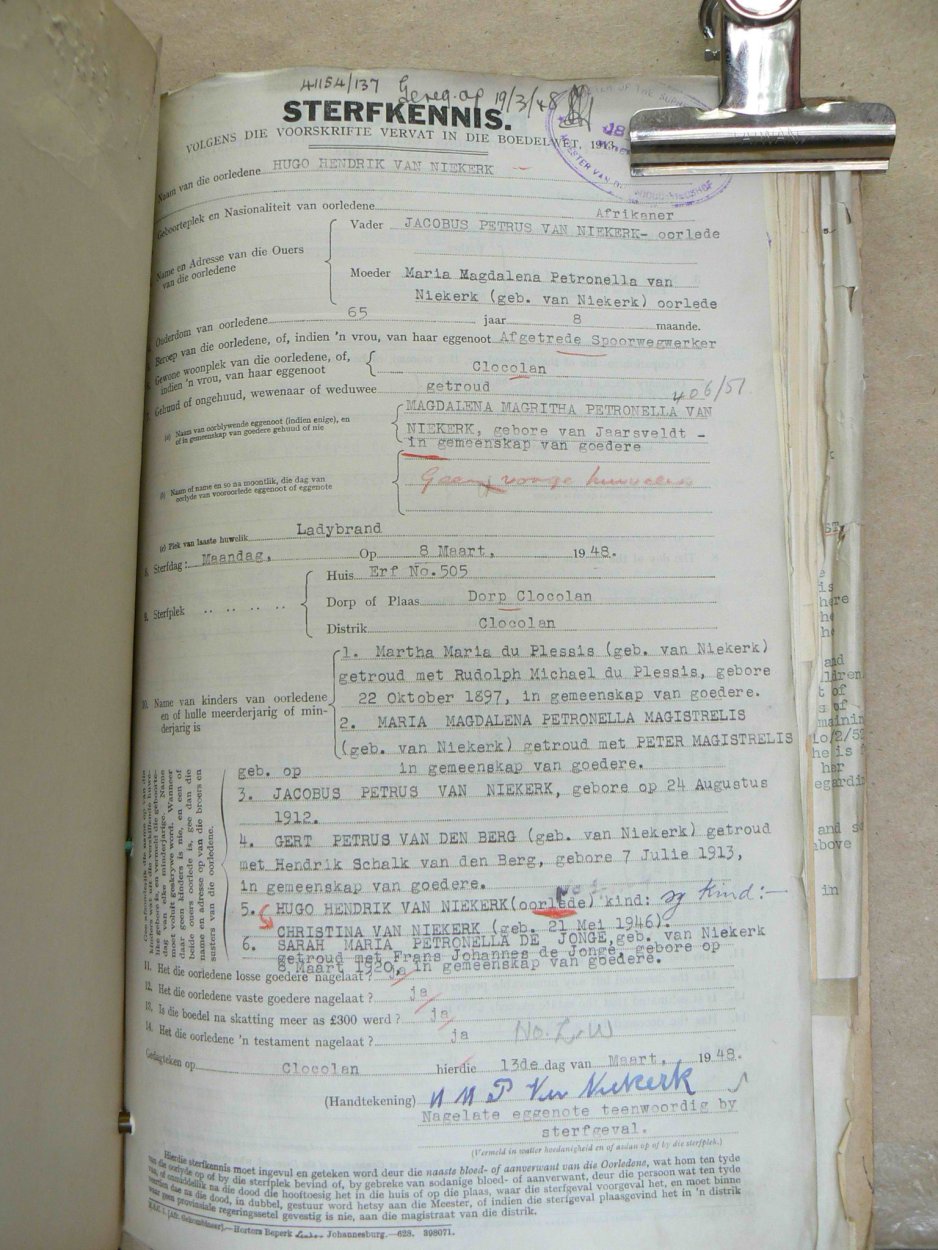 41154/137 Gereg. op 19/3/48
STERFKENNIS.
VOLGENS DIE VOORSKRIFTE VERVAT IN DIE BOEDELWET, 1913
Naam van die oorledene HUGO HENDRIK VAN NIEKERK
Geboorteplek en Nasionaliteit van oorledene Afrikaner
Name en Adresse van die Ouers van die oorledene
Vader JACOBUS PETRUS VAN NIEKERK- oorlede
Moeder Maria Magdalena Petronella van
Niekerk (geb. van Niekerk) oorlede
Ouderdom van oorledene 65 jaar 8 maande.
Beroep van die oorledene, of, indien 'n vrou, van haar eggenoot Afgetrede Spoorwegwerker
Gewone woonplek van die oorledene, of,
indien 'n vrou, van haar eggenoot Clocolan
7. Gehuud of ongehuud, wewenaar of weduwee getroud
406/51
(a) Naam van oorblywende eggenoot (indien enige), en
of in gemeenskap van goedere gehuud of nie
MAGDALENA MAGRITHA PETRONELLA VAN
NIEKERK, gebore van Jaarsveldt -
in gemeenskap van goedere
(b) Naam of name en so na moontlik, die dag van
oorlyde van vooroorlede eggenoot of eggenote
Geen vorige huwelik
(c) Plek van laaste huwelik Ladybrand
8. Sterfdag: Maandag, Op 8 Maart, 1948.
9. Sterfplek
Huis Erf No.505
Dorp of Plaas Dorp Clocolan
Distrik Clocolan
10. Name van kinders van oorledene
en of hulle meerderjarig of min-
derjarig is
1. Martha Maria du Plessis (geb. van Niekerk)
getroud met Rudolph Michael du Plessis, gebore
22 Oktober 1897, in gemeenskap van goedere.
2. MARIA MAGDALENA PETRONELLA MAGISTRELIS
(geb. van Niekerk) getroud met PETER MAGISTRELIS
geb. op in gemeenskap van goedere.
3. JACOBUS PETRUS VAN NIEKERK, gebore op 24 Augustus
1912.
4. GERT PETRUS VAN DEN BERG (geb. van Niekerk) getroud
met Hendrik Schalk van den Berg, gebore 7 Julie 1913,
in gemeenskap van goedere.
5. HUGO HENDRIK VAN NIEKERK(oorlede) kind: sy Kind:-
CHRISTINA VAN NIEKERK (geb. 21 Mei 1946).
6. SARAH MARIA PETRONELLA DE JONGE,geb. van Niekerk
getroud met Frans Johannes de Jonge, gebore op
8 Maart 1920, in gemeenskap van goedere.
11. Het die oorledene losse goedere nagelaat? ja
12. Het die oorledene vaste goedere nagelaat? ja
13. Is die boedel na skatting meer as £300 werd? ja
14. Het die oorledene 'n testament nagelaat? ja
Gedagteken op Clocolan hierdie 13de dag van Maart, 1948.
(Handtekening) M M P Van Niekerk
Nagelate eggenote teenwoordig by
sterfgeval.
(Vermeld in watter hoedanigheid en of aldan op of by die sterfplek.)
Hierdie sterfkennis moet ingevul en geteken word deur die naaste bloed- of aanverwant van die Oorledene, wat hom ten tyde
van die oorlyde op of by die sterfplek bevind of, by gebreke van sodanige bloed- of aanverwant, deur die persoon wat ten tyde
van, of onmiddelik na die dood die hooftoesig het in die huis of op die plaas, waar die sterfgeval voorgeval het, en moet binne
veertien dae na die dood, in dubbel, gestuur word hetsy aan die Meester, of indien die sterfgeval plaasgevind het in 'n distrik
waar geen provinsiale regeringssetel gevestig is nie, aan die magistraat van die distrik.
Hortors Beperk Johannesburg.—628. 398071.